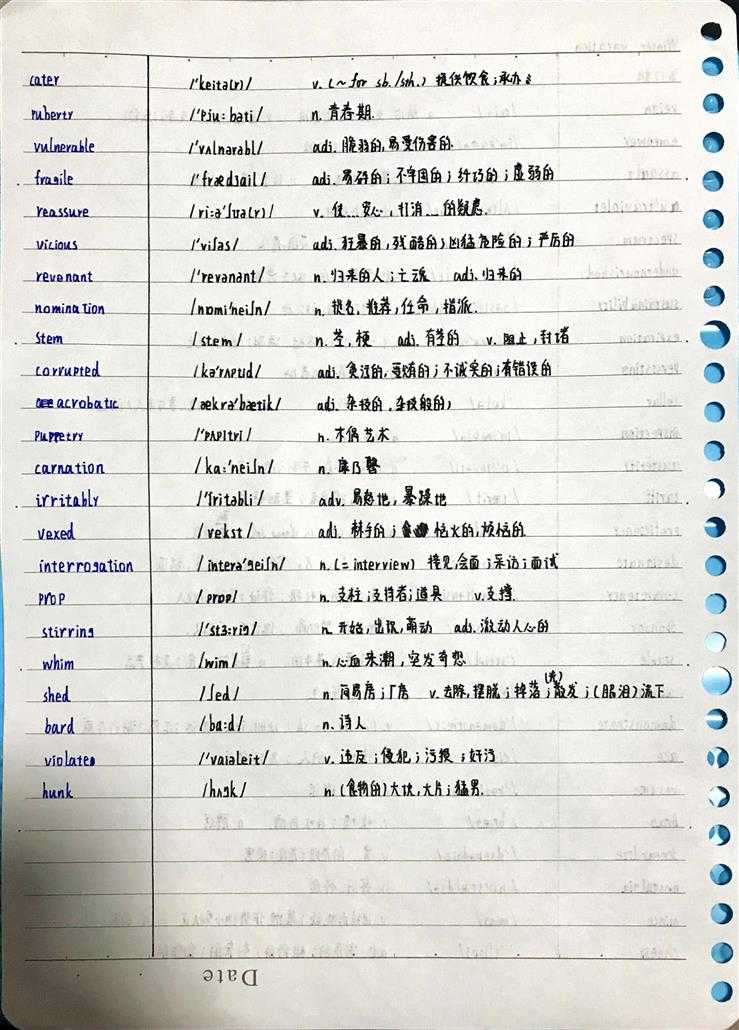 cater /'keitə(r)/ v. (~ for sb./sth.) 提供饮食;承办
puberty /'pju:bəti/ n. 青春期.
vulnerable /'vʌlnərəbl/ adj. 脆弱的,易受伤害的.
fragile /'frædʒail/ adj. 易碎的;不牢固的;纤巧的;虚弱的
reassure /ri:ə'ʃuə(r)/ v. 使…安心,打消…的疑虑.
vicious /'viʃəs/ adj. 狂暴的,残酷的;凶猛危险的;严厉的
revenant /'revənənt/ n. 归来的人;亡魂 adj. 归来的
nomination /nɒmi'neiʃn/ n. 提名,推荐,任命,指派.
stem /stem/ n. 茎,梗 adj. 有茎的 v. 阻止,封堵
corrupted /kə'rʌptid/ adj. 贪污的,的;不诚实的;有错误的
acrobatic /ækrə'bætik/ adj. 杂技的,杂技般的;
puppetry /'pʌpitri/ n. 木偶艺术
carnation /ka:'neiʃn/ n. 康乃馨
irritably /'iritəbli/ adv. 易怒地,暴躁地
vexed /vekst/ adj. 棘手的; 恼火的,烦恼的.
interrogation /intərə'geiʃn/ n. (= interview) 接见,会面;采访;面试
prop /prop/ n. 支柱;支持者;道具 v.支撑.
stirring /'stɜ:riŋ/ n. 开始,出现,萌动 adj. 激动人心的
whim /wim/ n. 心血来潮,突发奇想
shed /ʃed/ n. 简易房;厂房 v. 去除,摆脱;掉落;散发(光);(眼泪)流下
bard /ba:d/ n. 诗人
violate /'vaiəleit/ v. 违反;侵犯;污损;奸污
hunk /hʌŋk/ n. (食物的)大块,大片;猛男.
Date